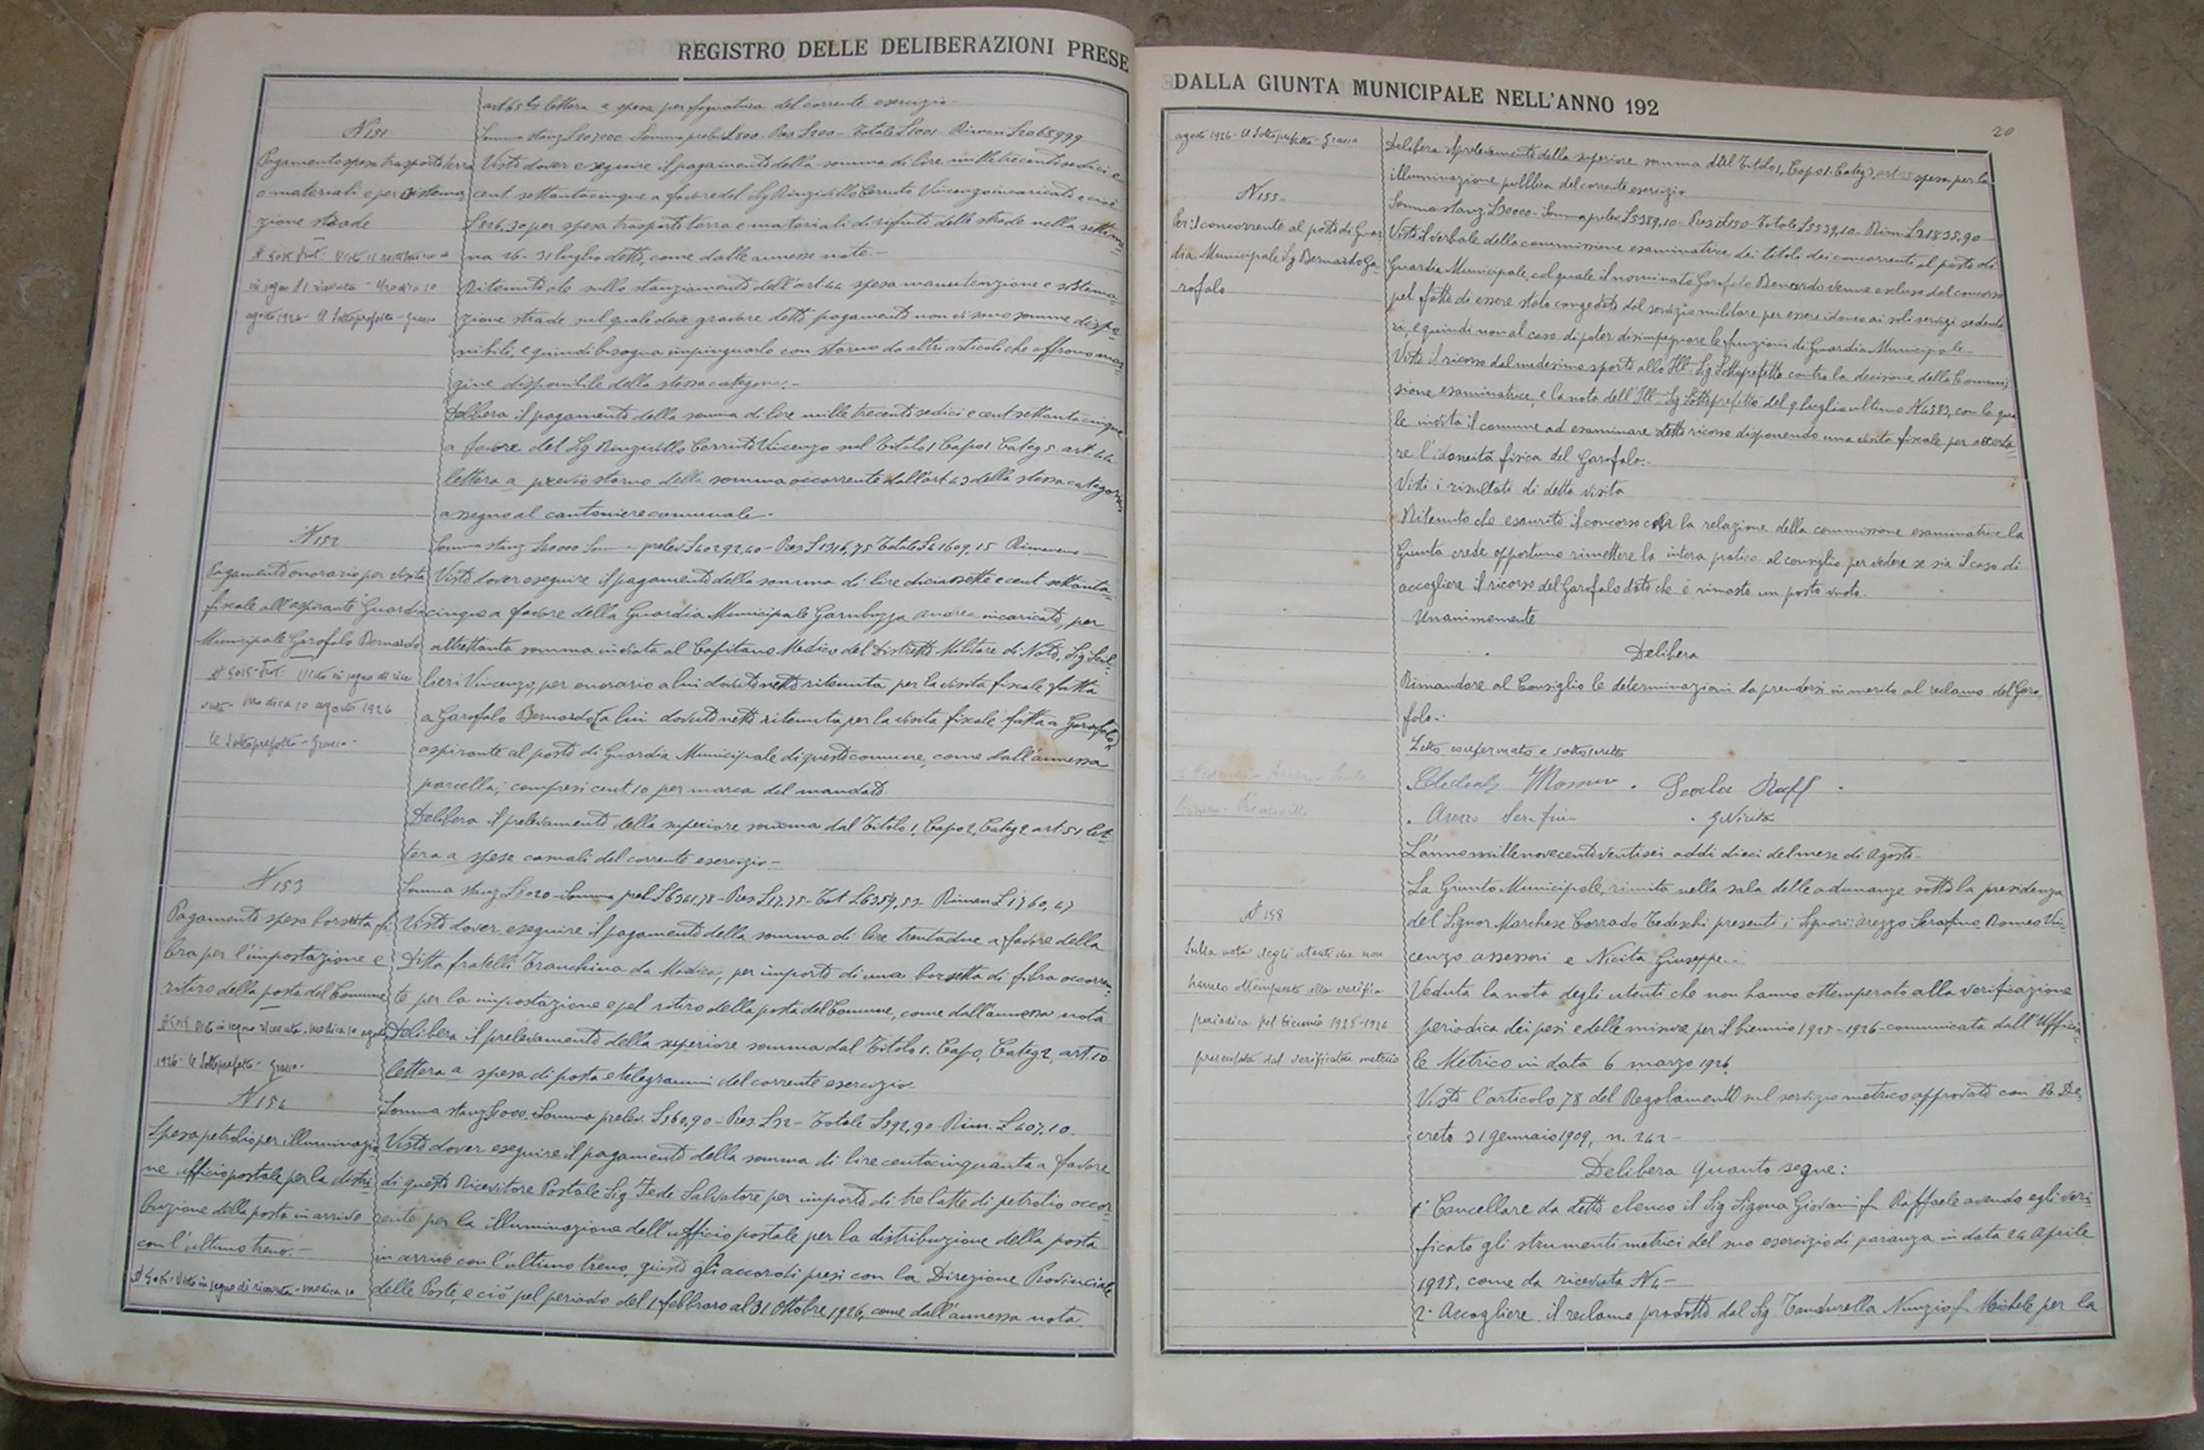 REGISTRO DELLE DELIBERAZIONI PRESE
art 65 lettera a spesa per fognatura del corrente esercizio
N 151
Pagamento spesa trasporto terra
e materiali e per sistema
zione strade
N 5015 Prot. Visto
in segno di ricevuta - Modica 10
agosto 1926 - Il Sottoprefetto - Grasso
Visto dover eseguire il pagamento della somma di lire mille trecento sedici e
cent. settantacinque a favore del Sig Rinzivillo Corrado Vincenzo incaricato e cioè
L 826,30 per spesa trasporto terra e materiali di rifiuti delle strade nella settima
na 26-31 luglio detto, come dalle annesse note.-
Ritenuto che sullo stanziamento dell'art 44 spesa manutenzione e sistema-
zione strade sul quale deve gravare detto pagamento non vi sono somme dispo-
nibili, e quindi bisogna impinguarlo con storno da altri articoli che offrono mar-
gine disponibile della stessa categoria.-
Delibera il pagamento della somma di lire mille trecento sedici e cent settantacinque
a favore del Sig Rinzivillo Corrado Vincenzo sul Titolo 1 Capo 1 Categ 5 art. 44
lettera a previo storno della somma occorrente dall'art 43 della stessa categoria
assegno al cantoniere comunale.
N 152
Pagamento onorario per visita
fiscale all'aspirante Guardia
Municipale Garofalo Bernardo
N 5015 Prot. Visto in segno di rice
vuta - Modica 10 agosto 1926
Il Sottoprefetto - Grasso -
Visto dover eseguire il pagamento della somma di lire diciassette e cent settanta-
cinque a favore della Guardia Municipale Garubuzza Andrea incaricato, per
altrettanta somma inviata al Capitano Medico del Distretto Militare di Noto, Sig
lieri Vincenzo, per onorario a lui dovuto netto ritenuta per la visita fiscale fatta
a Garofalo Bernardo (a lui dovuto netto ritenuta per la visita fiscale fatta a Garofalo)
aspirante al posto di Guardia Municipale di questo comune, come dall'annessa
parcella; compresi cent. 10 per marca del mandato
Delibera il prelevamento della superiore somma dal Titolo 1, Capo 2, Categ 2 art. 51 let-
tera a spese casuali del corrente esercizio -
N 153
Pagamento spesa borsetta fi
bra per l'impostazione e
ritiro della posta del Comune
N 5015 Visto in segno ricevuta - Modica 10 agosto
1926 - Il Sottoprefetto - Grasso -
Visto dover eseguire il pagamento della somma di lire trentadue a favore della
Ditta fratelli Tranchina da Modica, per importo di una borsetta di fibra occorren-
te per la impostazione e pel ritiro della posta del Comune, come dall'annessa nota
Delibera il prelevamento della superiore somma dal Titolo 1. Capo, Categ 2 art. 10
lettera a spesa di posta e telegrammi del corrente esercizio
N 154
Somma stanz L 1000 - Somma prelev. L 560,90 - Pres. L 32 - Totale L 592,90 - Rim. L 407,10.
Spesa petrolio per illuminazio
ne ufficio postale per la distri-
buzione della posta in arrivo
con l'ultimo treno.-
N 5015 - Visto in segno di ricevuta - Modica 10
Visto dover eseguire il pagamento della somma di lire centocinquanta a favore
di questo Ricevitore Postale Sig Fede Salvatore per importo di tre latte di petrolio occor-
rente per la illuminazione dell'ufficio postale per la distribuzione della posta
in arrivo con l'ultimo treno, giusto gli accordi presi con la Direzione Provinciale
delle Poste, e ciò pel periodo del 1 febbraro al 31 Ottobre 1926, come dall'annessa nota
DALLA GIUNTA MUNICIPALE NELL'ANNO 192
20
agosto 1926 - Il Sottoprefetto - Grasso
Delibera il prelevamento della superiore somma dal Titolo 1, Capo 1. Categ 3, art spesa per la
illuminazione pubblica del corrente esercizio
N 155.
Per il concorrente al posto di Guar
dia Municipale Sig Bernardo Ga-
rofalo
Visto il verbale della commissione esaminatrice dei titoli dei concorrenti al posto di
Guardia Municipale, col quale il nominato Garofalo Bernardo venne escluso dal concorso
pel fatto di essere stato congedato dal servizio militare per essere idoneo ai soli servizi sedenta
ri, e quindi non al caso di poter disimpegnare le funzioni di Guardia Municipale
Visto il ricorso dal medesimo sporto allo Ill. Sig Sottoprefetto contro la decisione della Commis
sione esaminatrice, e la nota dell'Ill. Sig Sottoprefetto del 9 luglio ultimo N 4583, con la qua
le invita il comune ad esaminare detto ricorso disponendo una visita fiscale per accerta-
re l'idoneità fisica del Garofalo.-
Visti i risultati di detta visita
Ritenuto che esaurito il concorso con la relazione della commissione esaminatrice la
Giunta crede opportuno rimettere la intera pratica al consiglio per vedere se sia il caso di
accogliere il ricorso del Garofalo dato che è rimasto un posto vuoto.
Unanimemente
Delibera
Rimandare al Consiglio le determinazioni da prendersi in merito al reclamo del Garo-
falo.-
Letto confermato e sottoscritto
L'anno millenovecentoventisei addì dieci del mese di agosto -
La Giunta Municipale, riunita nella sala delle adunanze sotto la presidenza
del Signor Marchese Corrado Tedeschi presenti i Signori: Arezzo Serafino, Romeo Vin-
cenzo assessori e Nicita Giuseppe.-
N 158
Sulla nota degli utenti che non
hanno ottemperato alla verifica
periodica pel biennio 1925-1926
presentata dal verificatore metrico
Veduta la nota degli utenti che non hanno ottemperato alla verificazione
periodica dei pesi e delle misure per il biennio 1925-1926 - comunicata dall'Uffici
le Metrico in data 6 marzo 1926
Visto l'articolo 78 del Regolamento sul servizio metrico approvato con R. De-
creto 31 gennaio 1909, n. 242 -
Delibera quanto segue:
1° Cancellare da detto elenco il Sig Sigona Giovanni f. Raffaele avendo egli veri-
ficato gli strumenti metrici del suo esercizio di paranza in data 24 Aprile
1925, come da ricevuta N 4 -
2° Accogliere il reclamo prodotto dal Sig Tandurella Nunzio f. Michele per la